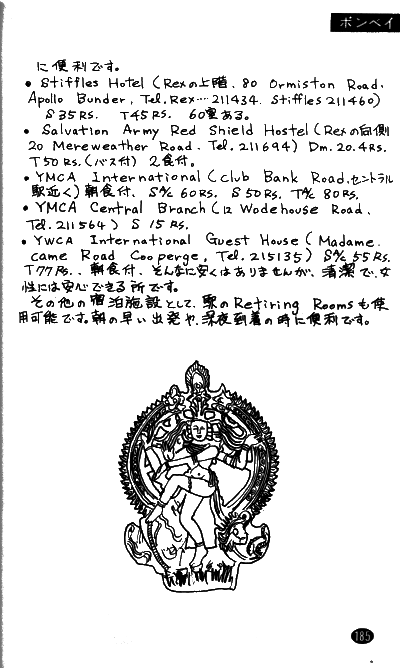 ボンベイ
に便利です。
• Stiffles Hotel (Rexの上階. 80 Ormiston Road.
Apollo Bunder, Tel. Rex…211434. Stiffles 211460)
S 35 Rs. T 45 Rs. 60室ある。
• Salvation Army Red Shield Hostel (Rexの向側
20 Mereweather Road. Tel. 211694) Dm. 20.4 Rs.
T 50 Rs. (バス付) 2食付。
• YMCA International (club Bank Road. セントラル
駅近く) 朝食付. S% 60 Rs. S 50 Rs. T% 80 Rs.
• YMCA Central Branch (12 Wodehouse Road.
Tel. 211564) S 15 Rs.
• YWCA International Guest House (Madame.
came Road Cooperge, Tel. 215135) S% 55 Rs.
T 77 Rs.. 朝食付. そんなに安くはありませんが、清潔で、女
性には安心できる所です。
その他の宿泊施設として、駅の Retiring Rooms も使
用可能です。朝の早い出発や、深夜到着の時に便利です。
185